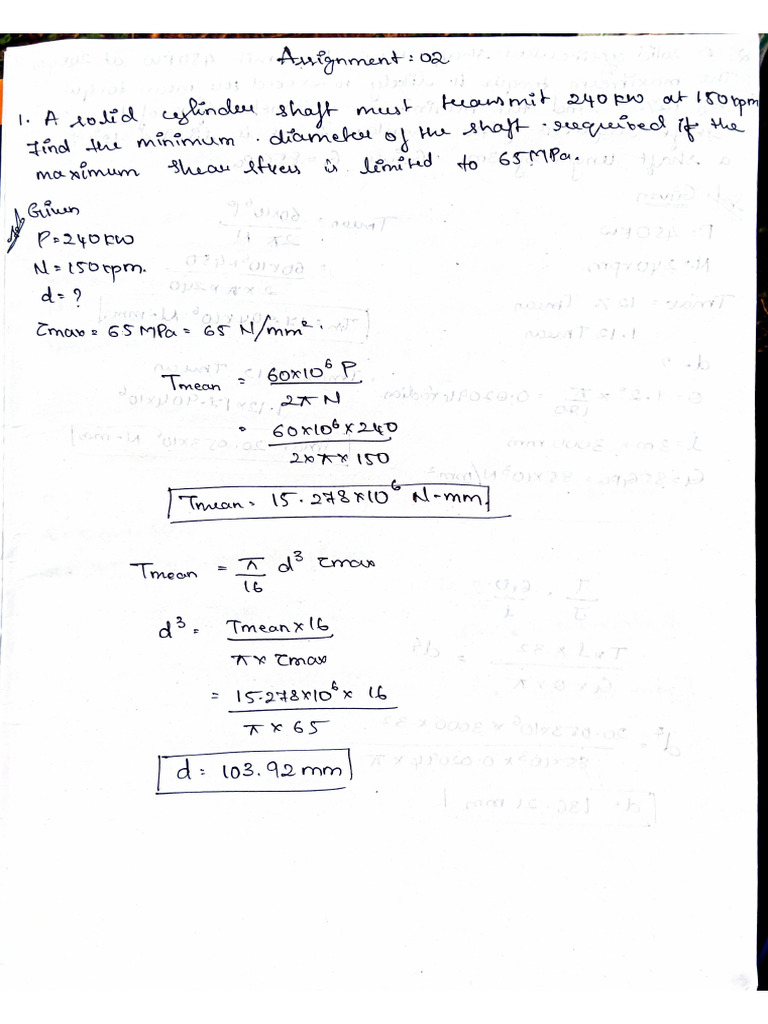 Assignment: 02
1. A solid cylinder shaft must transmit 240 kW at 150 rpm
Find the minimum diameter of the shaft required if the
maximum shear stress is limited to 65 MPa.
Given
P = 240 kW
N = 150 rpm.
d = ?
τmax = 65 MPa = 65 N/mm².
Tmean = 60×10⁶ P / 2πN
= 60×10⁶ × 240 / 2×π×150
Tmean = 15.278×10⁶ N-mm.
Tmean = π/16 d³ τmax
d³ = Tmean×16 / π×τmax
= 15.278×10⁶ × 16 / π × 65
d = 103.92 mm